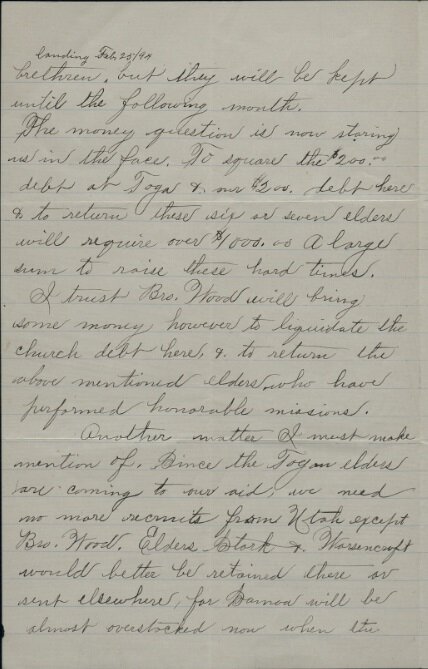 Landing Feb 25/94
brethren, but they will be kept
until the following month.
The money question is now staring
us in the face. To square the $200.00
debt at Toga & our $200. debt here
& to return these six or seven elders
will require over $1000.00 A large
sum to raise these hard times.
I trust Bro. Wood will bring
some money however to liquidate the
church debt here, & to return the
above mentioned elders, who have
performed honorable missions.
Another matter I must make
mention of. Since the Togan elders
are coming to our aid, we need
no more recruits from Utah except
Bro. Wood. Elders Stark & Warsencroft
would better be retained there or
sent elsewhere, for Samoa will be
almost overstocked now when the